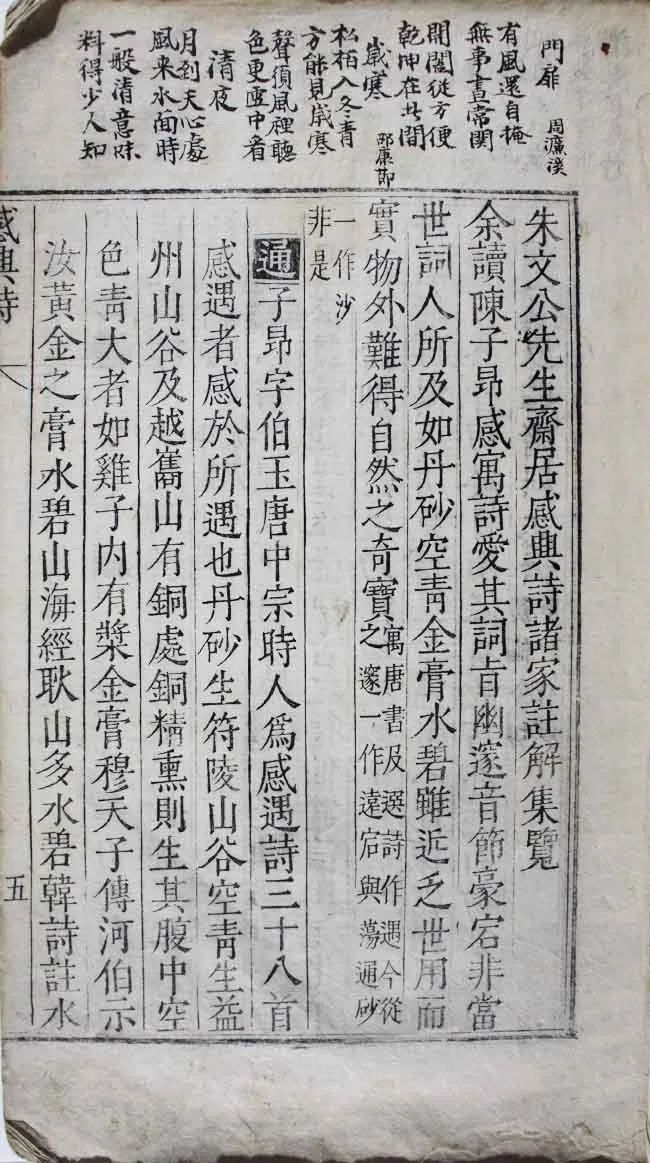 門扉 周濂溪
有風還自掩
無事晝常関
開闔従方便
乾坤在此間
歲寒 邵康節
松栢入冬青
方能見歲寒
聲須風裡聽
色更雪中看
清夜
月到天心處
風来水面時
一般清意味
料得少人知
朱文公先生齋居感興詩諸家註解集覽
余讀陳子昂感寓詩愛其詞旨幽邃音節豪宕非當
世詞人所及如丹砂空青金膏水碧雖近乏世用而
實物外難得自然之奇寶寓唐書及選詩作遇今從
之邃一作遠宕與蕩通砂
一作沙
非是
通子昂字伯玉唐中宗時人爲感遇詩三十八首
感遇者感於所遇也丹砂生符陵山谷空青生益
州山谷及越嶲山有銅處銅精熏則生其腹中空
色青大者如雞子内有漿金膏穆天子傳河伯示
汝黃金之膏水碧山海經耿山多水碧韓詩註水
感興詩
五